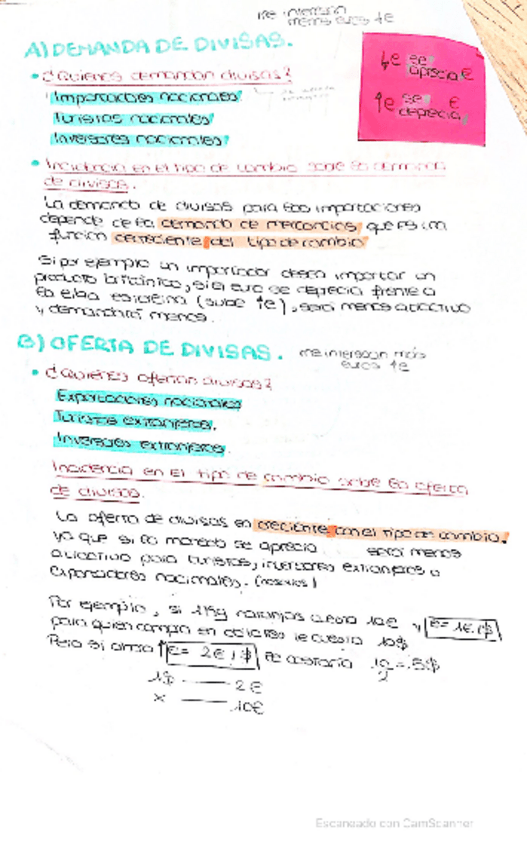 me interesan
menos euros ↑e
A) DEMANDA DE DIVISAS.
↓e se aprecia €
↑e se deprecia €
• ¿Quiénes demandan divisas?
Importadores nacionales
Turistas nacionales
Inversores nacionales
• Incidencia en el tipo de cambio sobre la demanda
de divisas.
La demanda de divisas para las importaciones
depende de la demanda de mercancías, que es una
función decreciente del tipo de cambio
Si por ejemplo un importador desea importar un
producto británico, si el euro se deprecia frente a
la libra esterlina (sube ↑e), será menos atractivo
y demandará menos.
B) OFERTA DE DIVISAS.
me interesan más
euros ↑e
• ¿Quiénes ofertan divisas?
Exportadores nacionales
Turistas extranjeros.
Inversores extranjeros.
Incidencia en el tipo de cambio sobre la oferta
de divisas.
La oferta de divisas es creciente con el tipo de cambio.
ya que si la moneda se aprecia será menos
atractivo para turistas, inversores extranjeros o
exportadores nacionales.
Por ejemplo, si 1kg naranjas cuesta 10€ y e= 1€/$
para quien compra en dólares le cuesta 10$
Pero si ahora ↑e= 2€/$ le costaría 10/2 = 5$
1$ —— 2€
x —— 10€
Escaneado con CamScanner